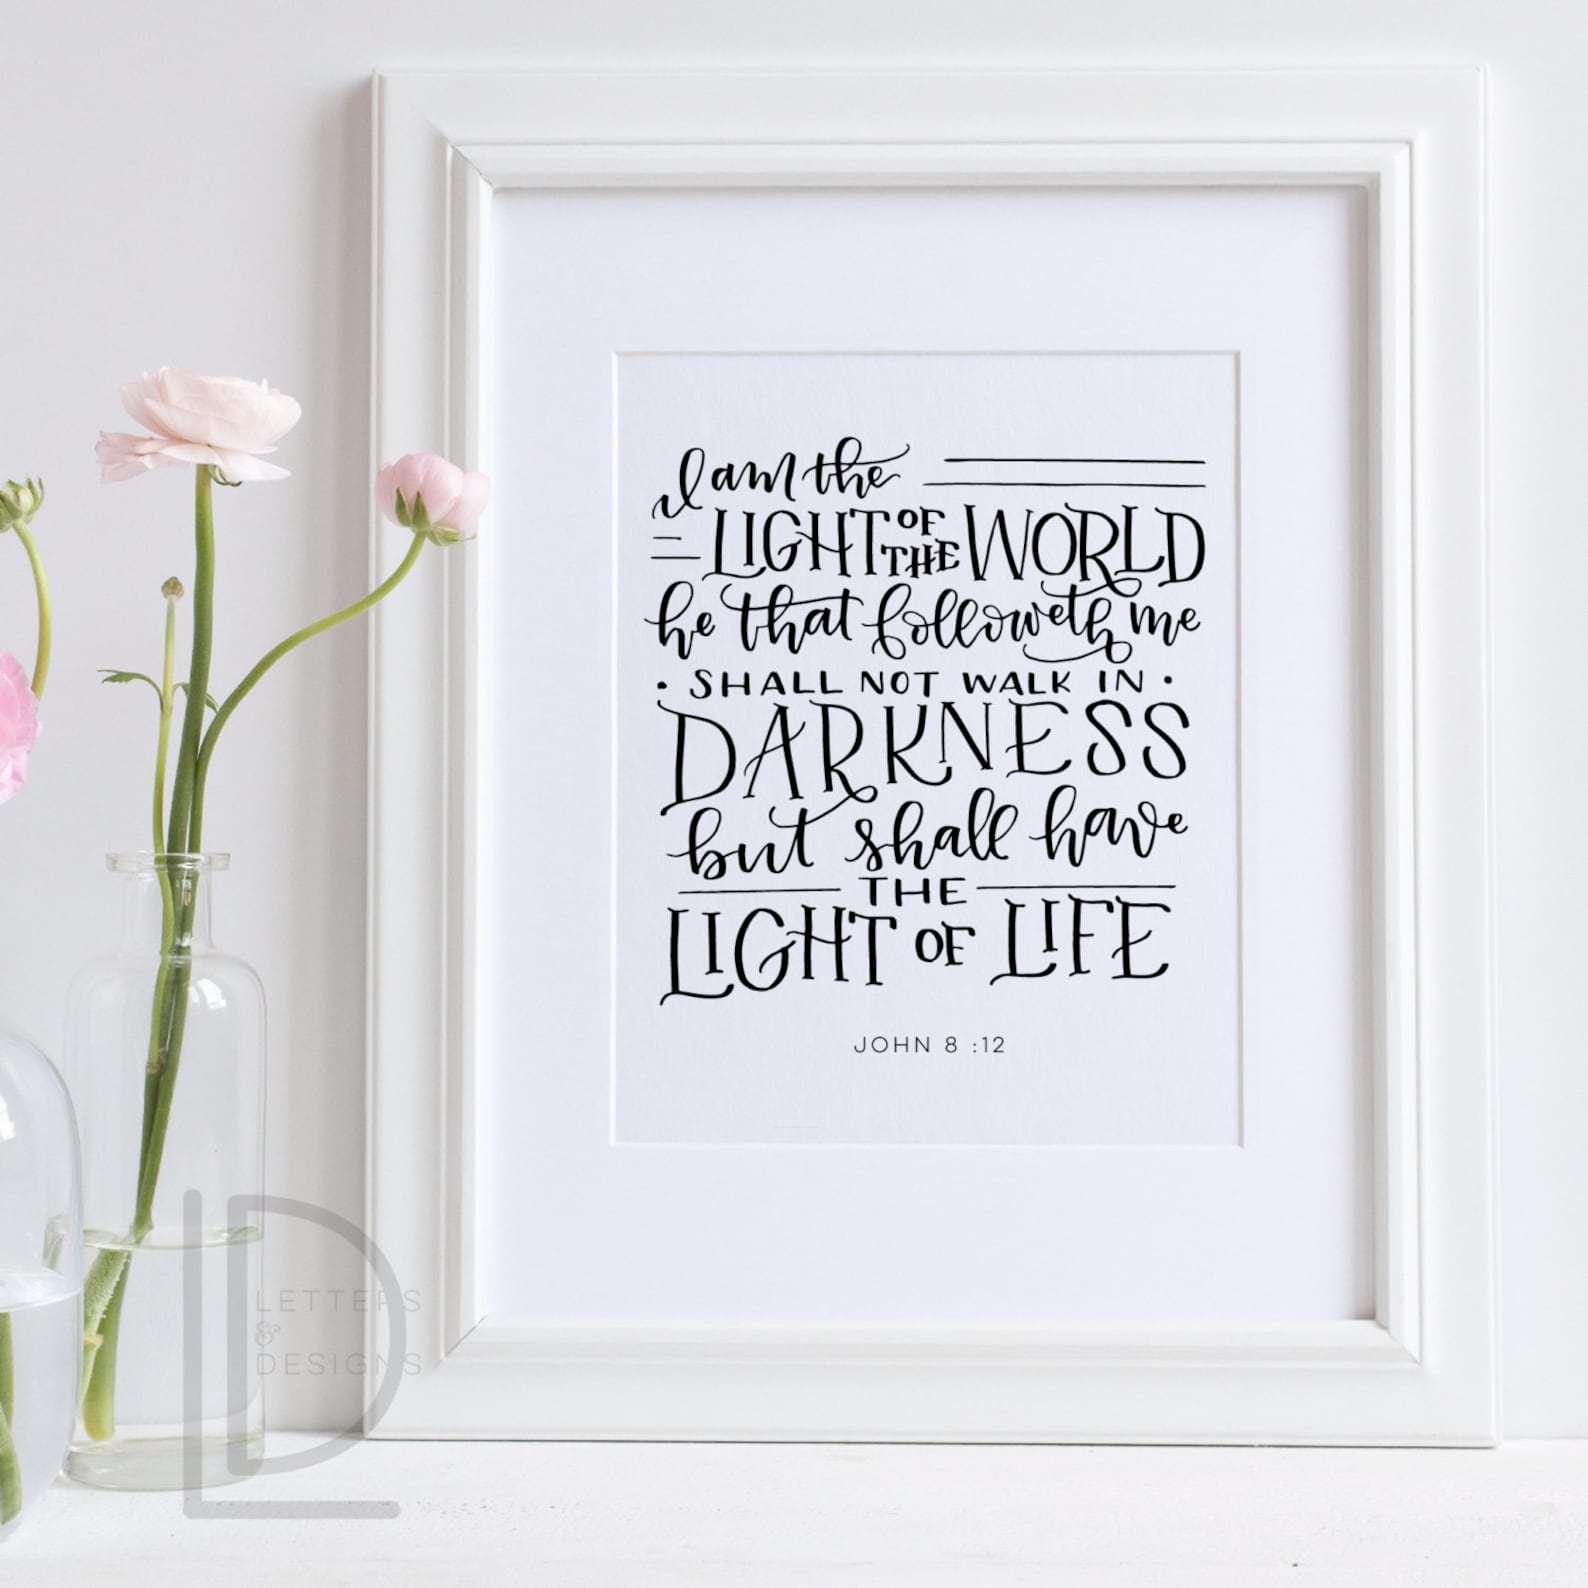 I am the
LIGHT OF THE WORLD
he that followeth me
• SHALL NOT WALK IN •
DARKNESS
but shall have
THE
LIGHT OF LIFE
JOHN 8 :12
LD
LETTERS
&
DESIGNS